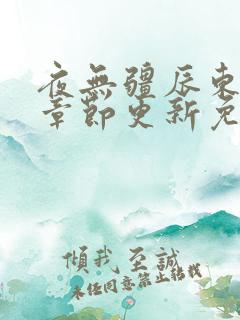 夜無疆辰東
章節更新免
傾我至誠
未經同意禁止轉載